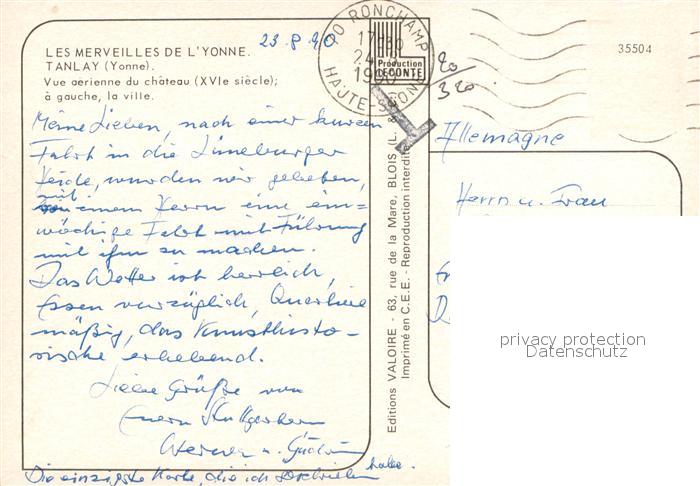 LES MERVEILLES DE L'YONNE.
TANLAY (Yonne).
Vue aérienne du château (XVIe siècle);
à gauche, la ville.
23.8.90
70 RONCHAMP
17H30
1990
HAUTE-SAONE
Production
LECONTE
35504
20
320
T
Allemagne
Herrn u. Frau
Meine Lieben, nach einer kurzen
Fahrt in die Lüneburger
Heide, wurden wir gebeten,
mit einem Herrn eine ein-
wöchige Fahrt mit Führung
mit ihm zu machen.
Das Wetter ist herrlich,
Essen vorzüglich,
mäßig, das Kunsthisto-
rische erhebend.
Liebe Grüße von
Euern Stuttgartern
Werner u.
Die einzigste Karte, die ich
habe.
Editions VALOIRE - 63, rue de la Mare, BLOIS (L.
Imprimé en C.E.E. - Reproduction interdite
privacy protection
Datenschutz